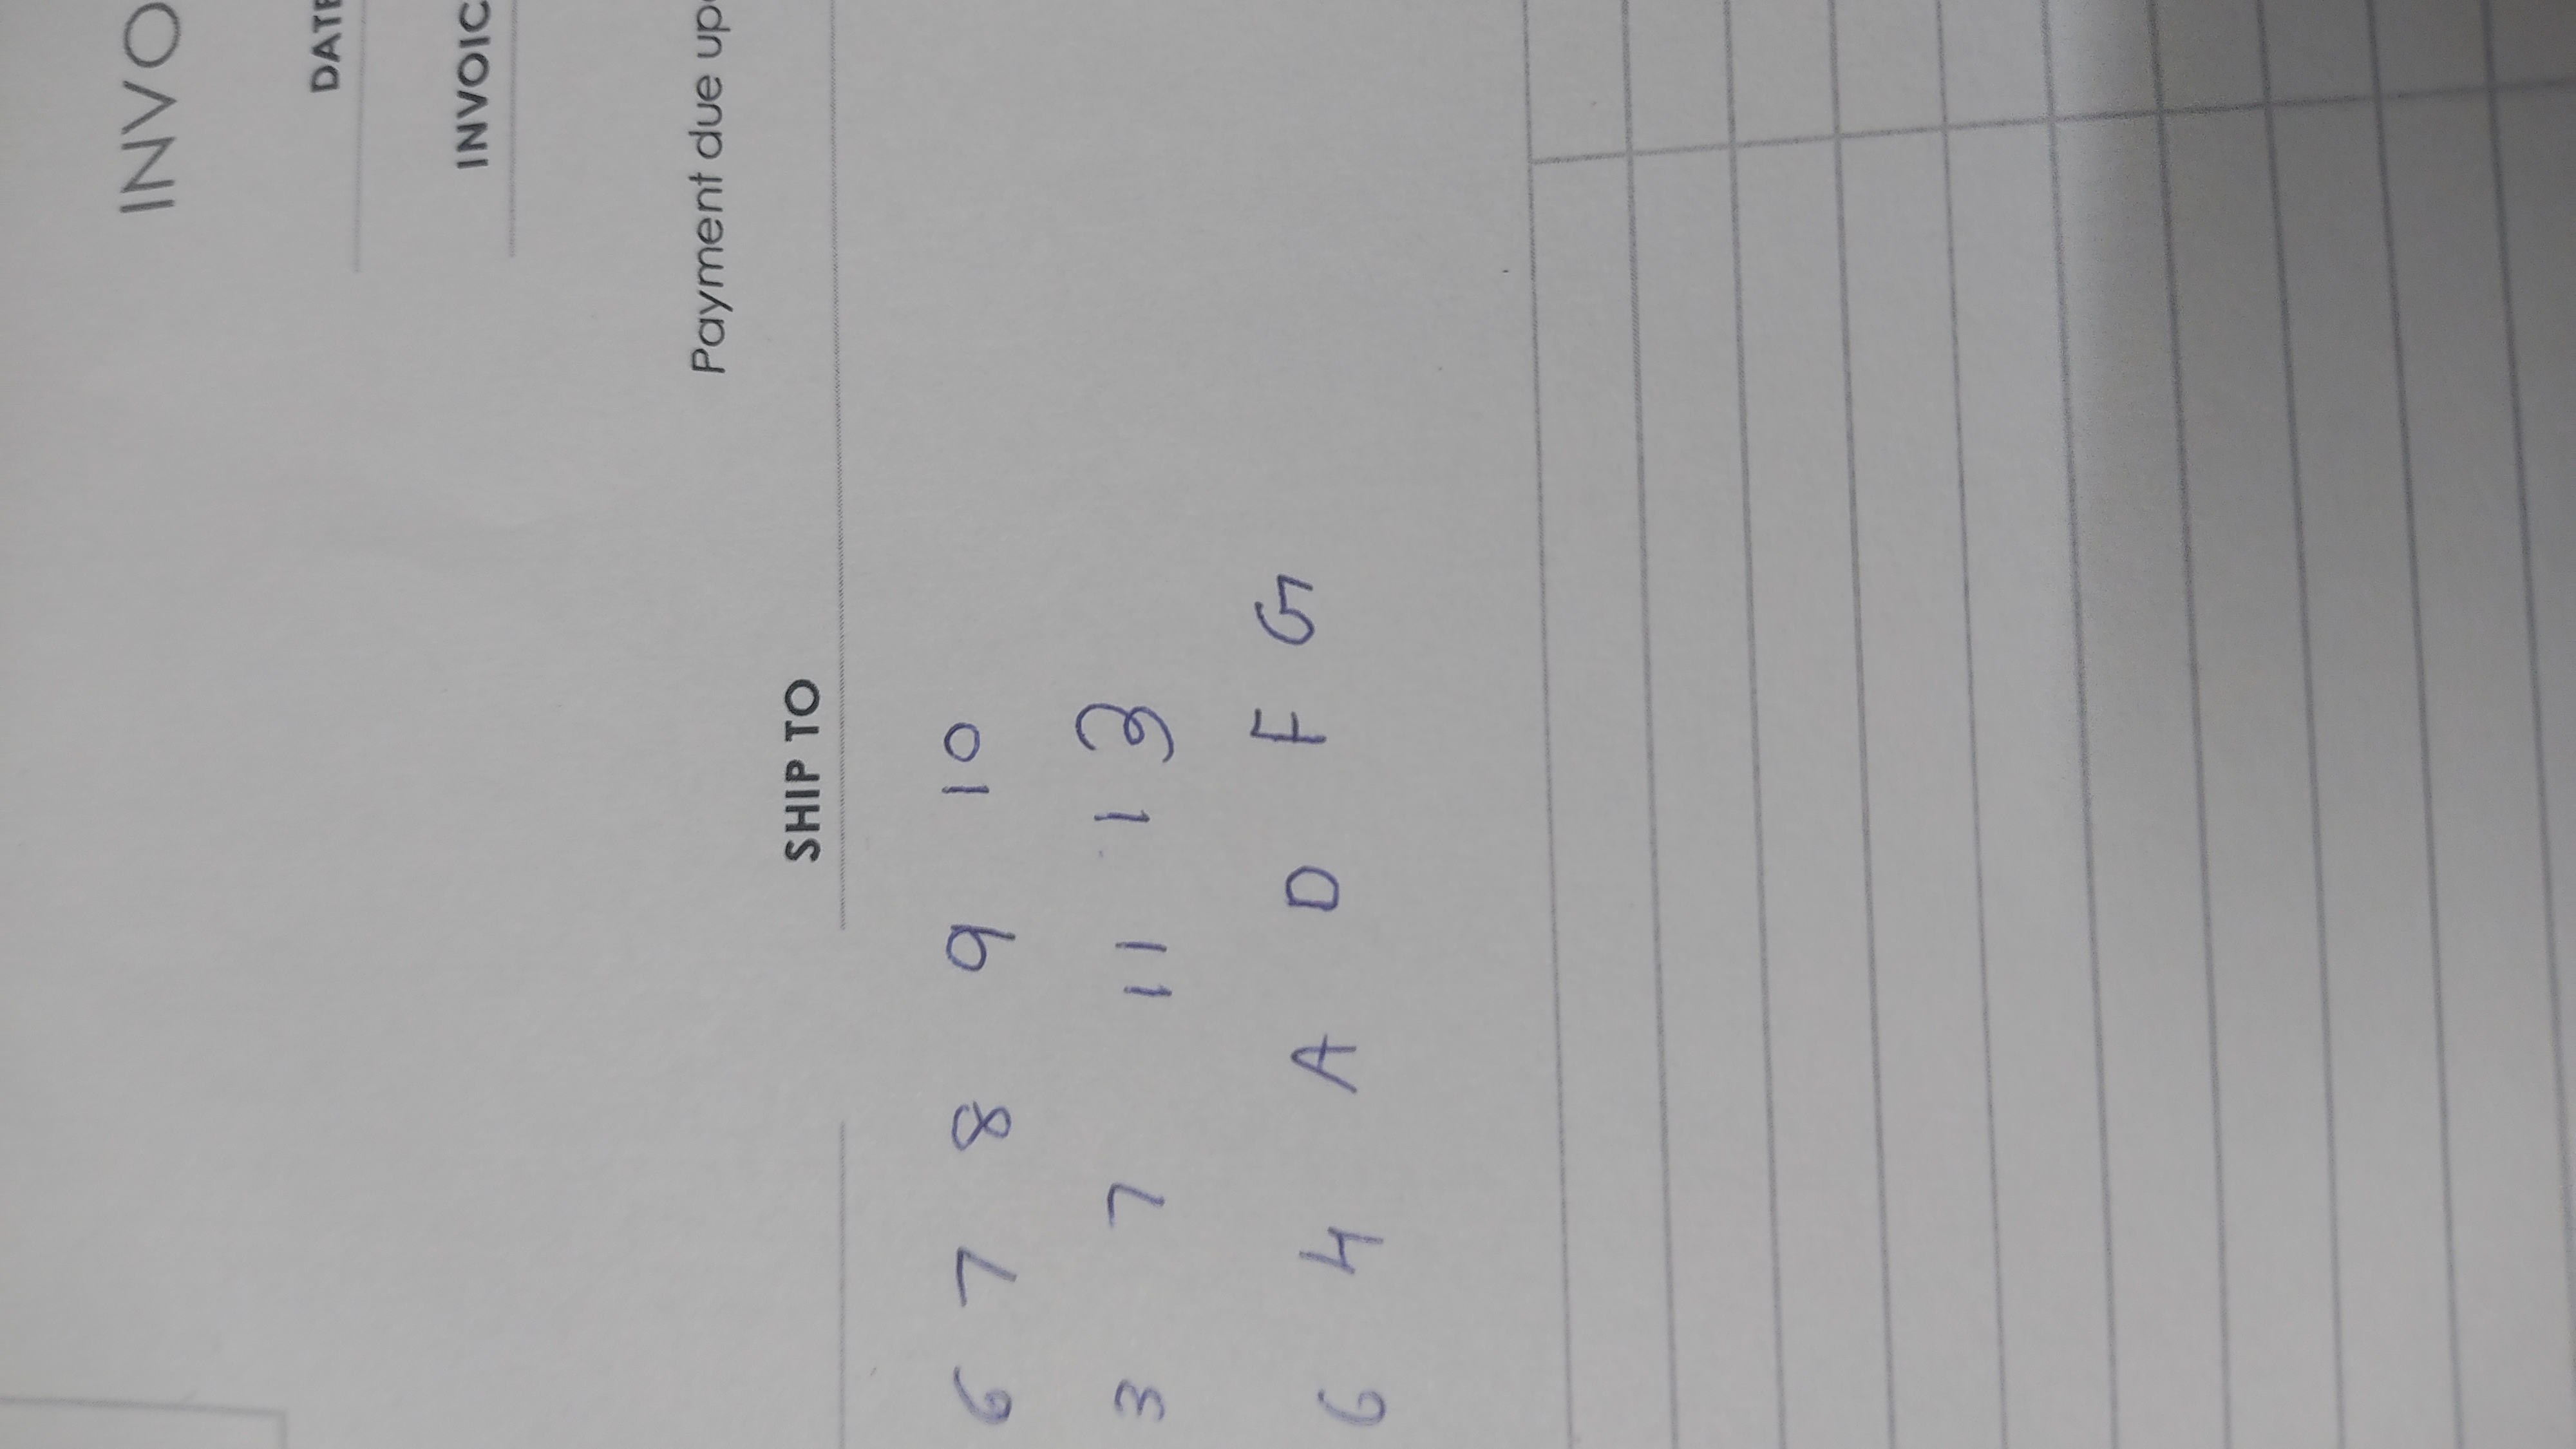 INVO
DATE
INVOIC
Payment due upo
SHIP TO
6 7 8 9 10
3 7 11 13
6 4 A D F G